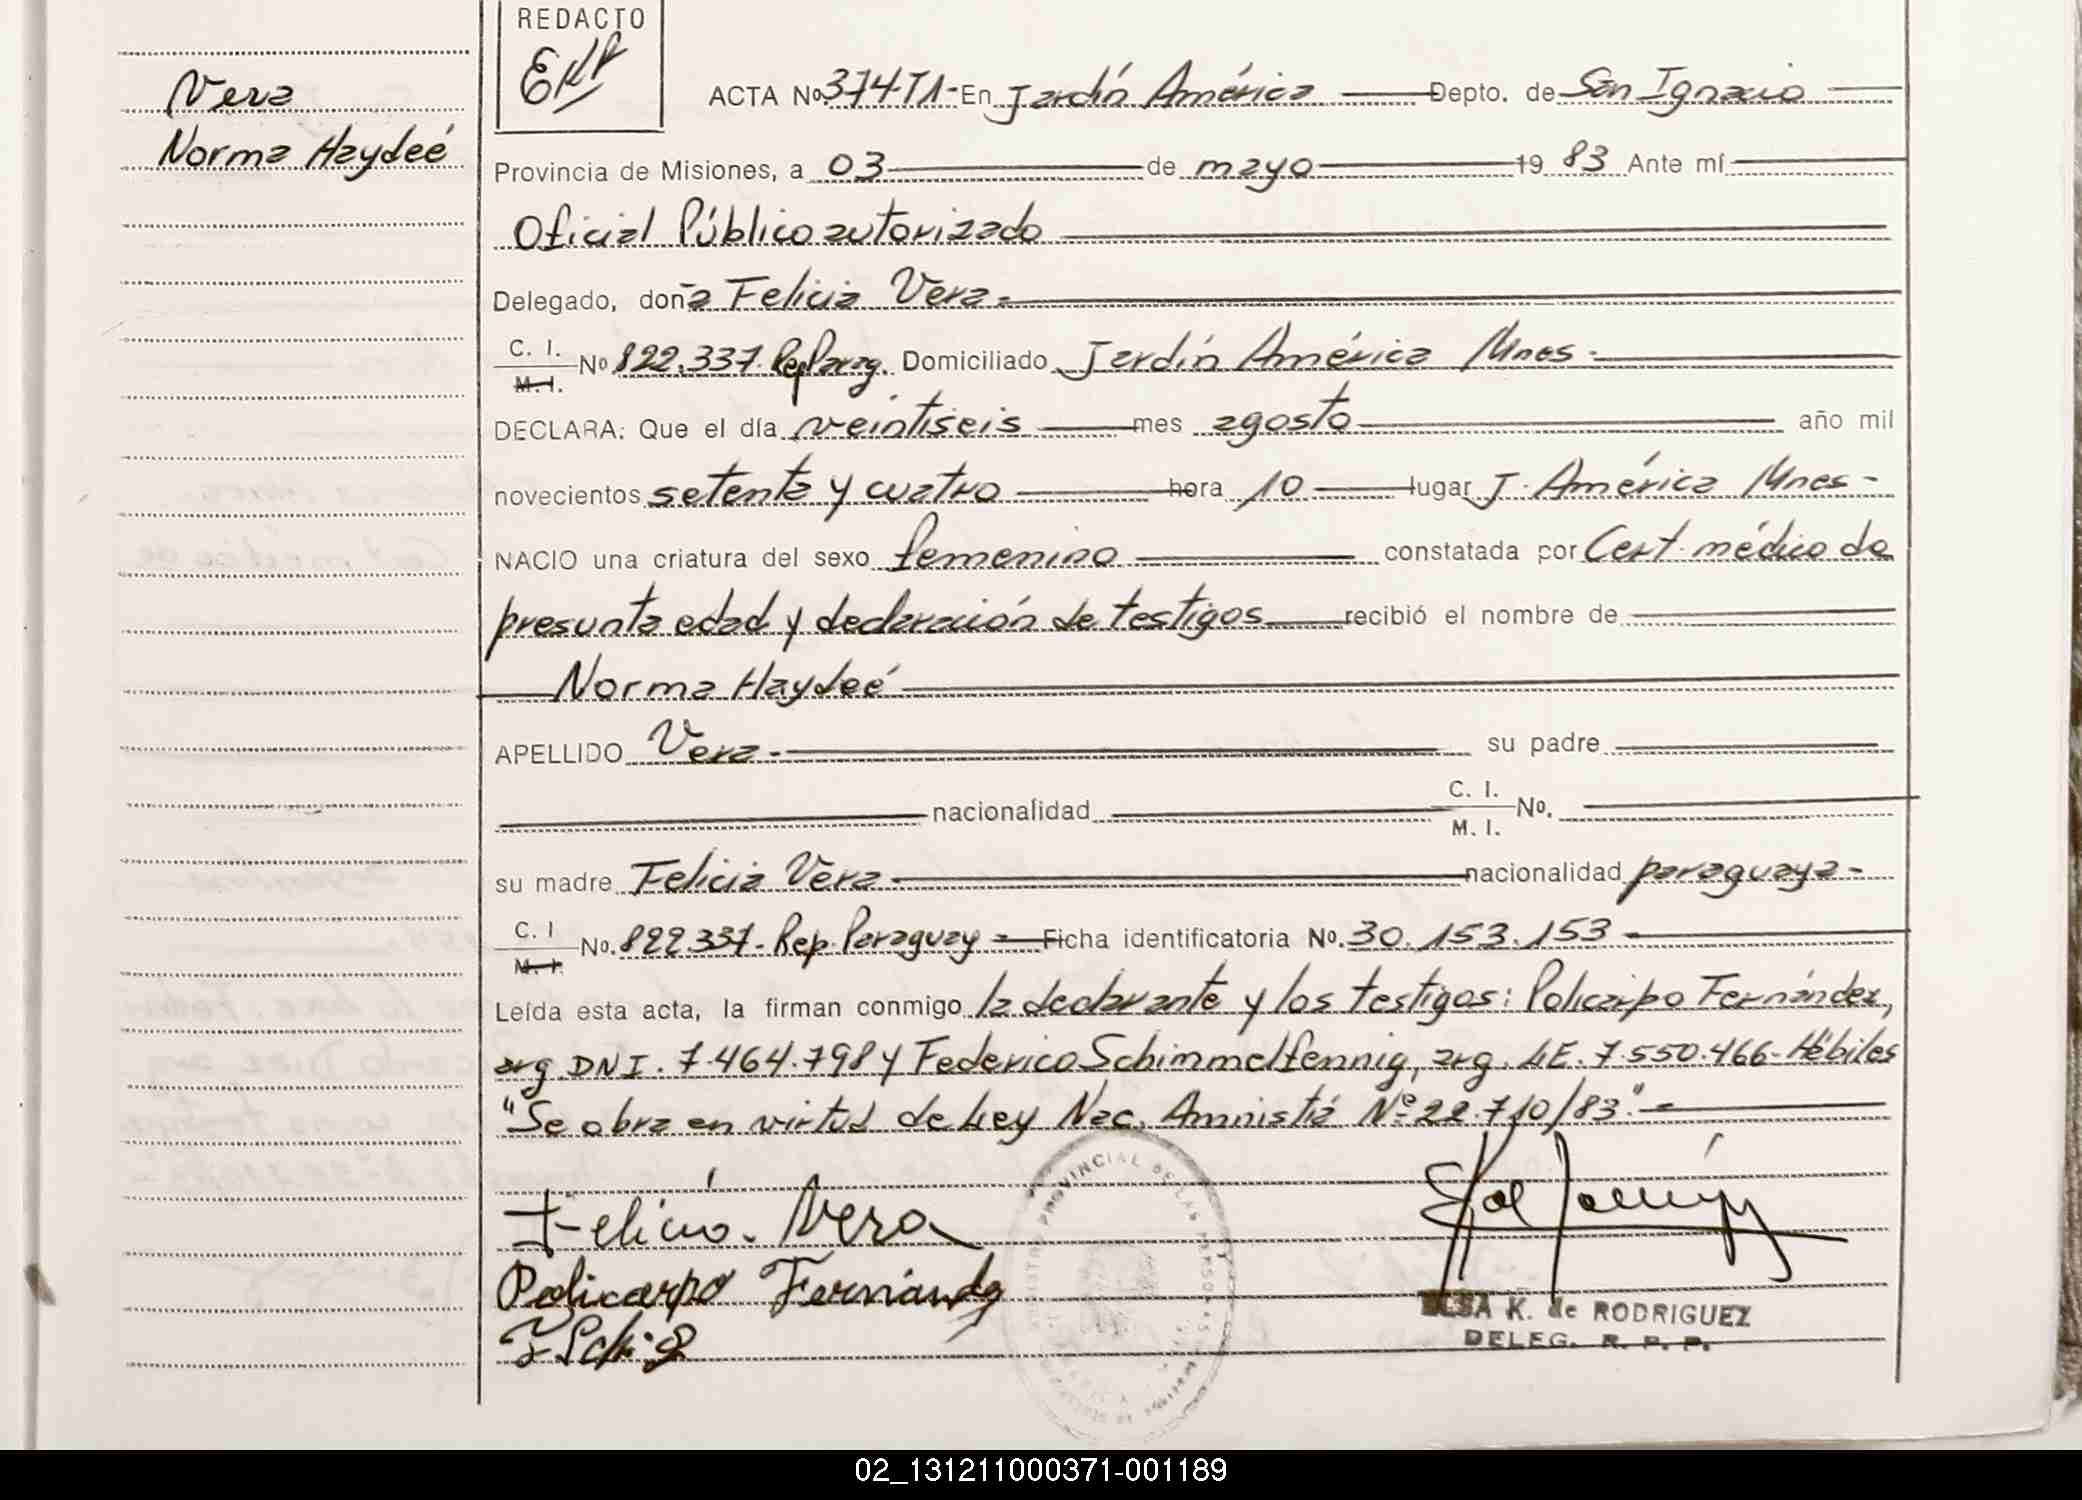 REDACTO
Vera
Norma Haydeé
ACTA No. 374-TI- En Jardín América Depto. de San Ignacio
Provincia de Misiones, a 03 de mayo 19 83 Ante mí
Oficial Público autorizado
Delegado, doña Felicia Vera.
C. I.
M. I.
No 822.337. Rep Parag. Domiciliado Jardín América Mnes.
DECLARA: Que el día veintiseis mes agosto año mil
novecientos setenta y cuatro hora 10 lugar J. América Mnes-
NACIO una criatura del sexo femenino constatada por Cert. médico de
presunta edad y declaración de testigos recibió el nombre de
Norma Haydeé
APELLIDO Vera - su padre
nacionalidad C. I.
M. I. No.
su madre Felicia Vera nacionalidad paraguaya-
C. I
M. I.
No. 822.337- Rep. Paraguay - Ficha identificatoria No. 30.153.153
Leída esta acta, la firman conmigo la declarante y los testigos: Policarpo Fernández,
arg. DNI. 7.464.798 y Federico Schimmelfennig, arg. LE. 7.550.466- Hábiles
"Se obra en virtud de Ley Nac. Amnistía Nº 22.710/83."-
Felicia. Vera
Policarpo Fernández
ELSA K. de RODRIGUEZ
DELEG. R. P. P.
PROVINCIAL DE LAS PERSONAS
02_131211000371-001189